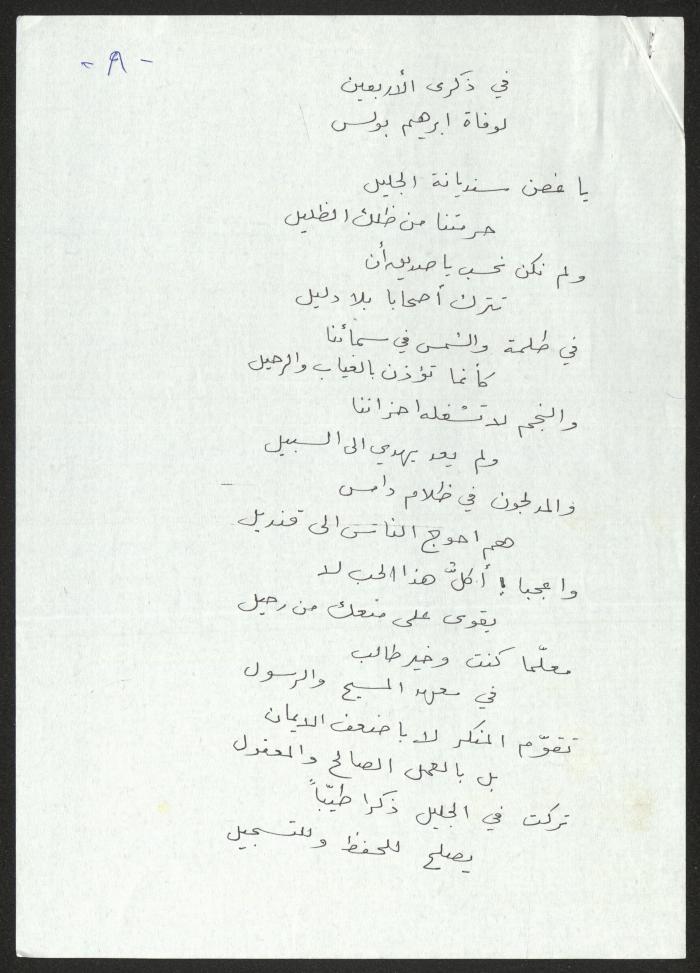 - ٩ -
في ذكرى الأربعين
لوفاة ابرهيم بولس
يا غصن سنديانة الجليل
حرمتنا من ظلك الظليل
ولم نكن نحسب يا صديق أن
تترك أصحابا بلا دليل
في ظلمة والشمس في سمائنا
كأنما تؤذن بالغياب والرحيل
والنجم لا تشغله احزاننا
ولم يعد يهدي الى السبيل
والمدلجون في ظلام دامس
هم احوج الناس الى قنديل
واعجبا ! أكلُّ هذا الحب لا
يقوى على منعك من رحيل
معلّما كنت وخير طالب
في معهد المسيح والرسول
تقوّم المنكر لا باضعف الايمان
بل بالعمل الصالح والمعقول
تركت في الجليل ذكرا طيّباً
يصلح للحفظ وللتسجيل